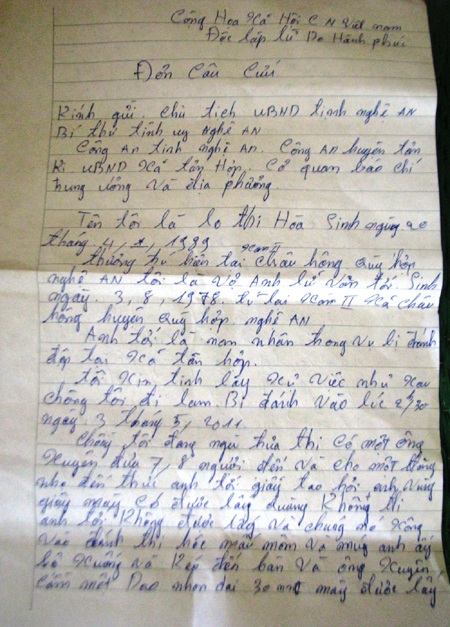 Cộng Hòa Xã Hội C N Việt nam
Độc lập Tự Do Hành phúc
Đơn Câu Cứu
Kính gửi chủ tịch UBND tỉnh nghệ AN
Bí thư tỉnh uỷ Nghệ AN
Công An tỉnh nghệ An. Công AN huyện tân
Kì UBND Xã tân Hợp. Cơ quan báo chí
trung ương Và địa phương
Tên tôi là lo thi Hoa Sinh ngày 20
tháng 1989
thường trú hiện tại Châu hồng quỳ hợp
nghệ AN tôi là Vợ Anh lữ Văn tới. Sinh
ngày. 3, 8, 1978. tú tại Xom II Xã châu
hồng huyện quỳ hợp. nghệ AN
Anh tới là nan nhân trong Vụ bi đánh
đập tại Xã tân hợp.
tôi Xin tinh lấy Xử Việc như Xau
chồng tôi đi lam Bi đánh Vào lúc 2h30
ngay 3 tháng 5, 2011
chồng tôi đang ngủ trưa thi có một ông
Xuyên đưa 7, 8 người đến Và cho một thằng
nhỏ đến thức anh tới giấy tao hỏi anh Vùng
giấy máy có được lấy quặng Không thi
anh tới Không được lấy Và chúng nó Xông
Vào đánh thi hốc máu mồm Và mũi anh ấy
bỏ Xuống Và Kéo đến ban Và ông Xuyên
cầm một Dao nhọn dài 30 may được lấy